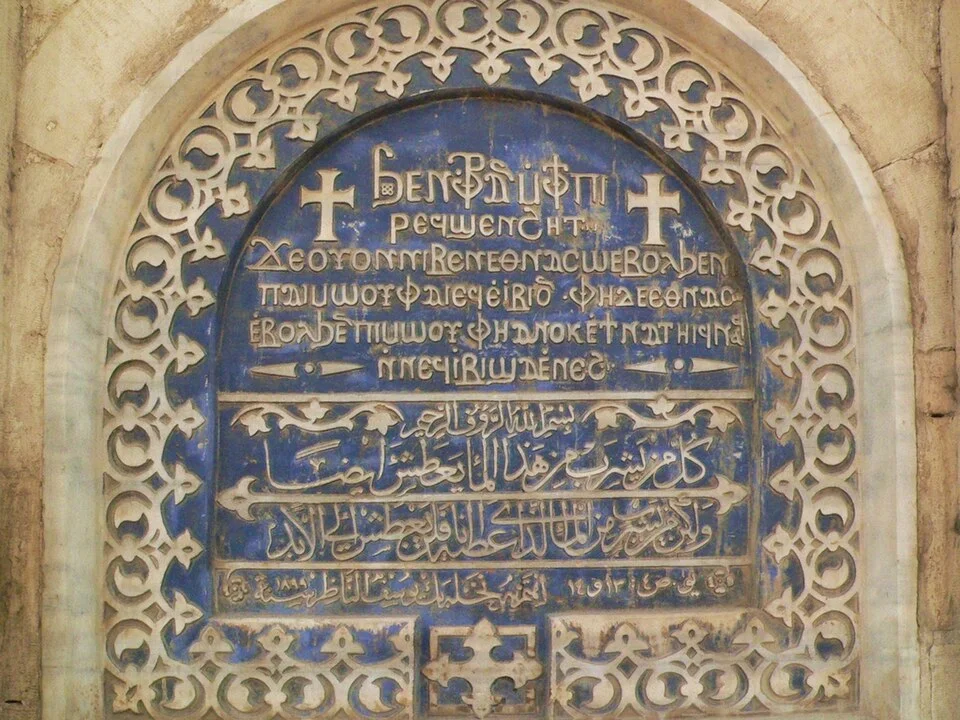 ϧⲉⲛ ⲫⲣⲁⲛ ⲙ̀ⲫϯ ⲡⲓ
ⲣⲉϥϣⲉⲛϩⲏⲧ
ϫⲉ ⲟⲩⲟⲛ ⲛⲓⲃⲉⲛ ⲉⲑⲛⲁⲥⲱ ⲉⲃⲟⲗ ϧⲉⲛ
ⲡⲁⲓⲙⲱⲟⲩ ⲫⲁⲓ ⲉϥⲉ̀ⲓⲃⲓ ⲟ̅ ⲫⲏ ⲇⲉ ⲉⲑⲛⲁⲥⲱ
ⲉ̀ⲃⲟⲗϧⲉ̅ ⲡⲓⲙⲱⲟⲩ ⲫⲏ ⲁⲛⲟⲕ ⲉϯⲛⲁⲧⲏⲓϥ ⲛⲁϥ
ⲛ̀ⲛⲉϥⲓⲃⲓ ϣⲁ ⲉ̀ⲛⲉϩ
بسم الله الرؤف الرحيم
كل من يشرب من هذا الما يعطش أيضا
ولكن من يشرب من الما الذى اعطيه انا فلن يعطش الى الابد
ص ٤ : ١٣ و ١٤ يوسف سنة ١٨٩٩